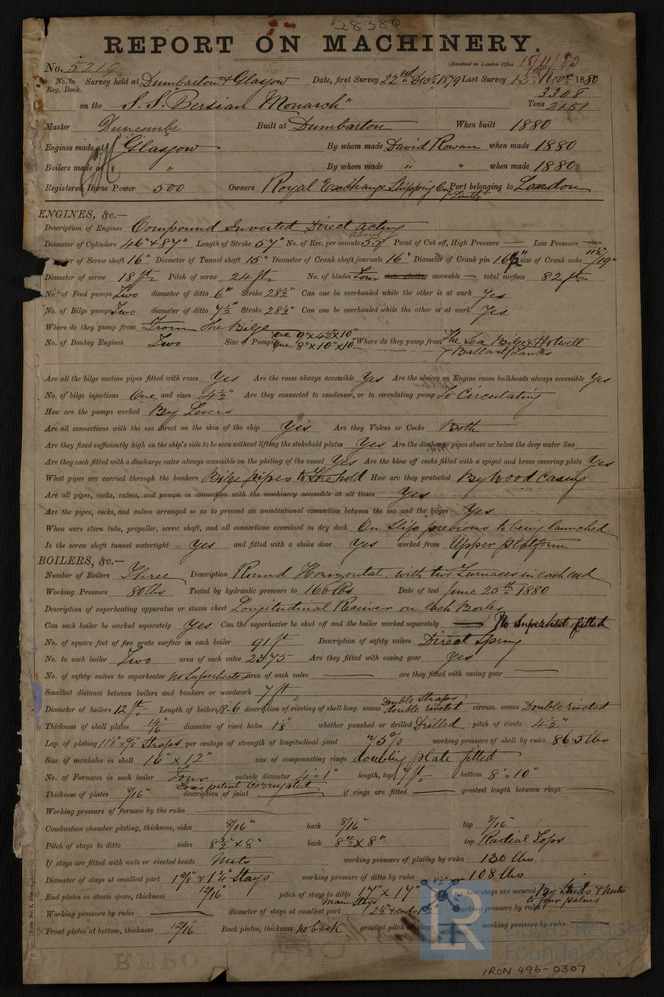 28380
REPORT ON MACHINERY.
No. 5219 (Received in London Office 18/11/80
No. in Survey held at Dumbarton & Glasgow Date, first Survey 22nd Dec 1879 Last Survey 15 Novr 1880
Reg. Book. 3308
on the S.S. "Persian Monarch" Tons 2151
Master Duncombe Built at Dumbarton When built 1880
Engines made at Glasgow By whom made David Rowan when made 1880
Boilers made at " By whom made " " when made 1880
Registered Horse Power 500 Owners Royal Exchange Shipping Co Port belonging to London
ENGINES, &c.—
Description of Engines Compound Inverted Direct acting
Diameter of Cylinders 46" & 87" Length of Stroke 57" No. of Rev. per minute about Point of Cut off, High Pressure — Low Pressure —
of Screw shaft 16" Diameter of Tunnel shaft 15" Diameter of Crank shaft journals 16" Diameter of Crank pin size of Crank webs
Diameter of screw 18 ft Pitch of screw 24 ft No. of blades Four moveable — total surface 82 ft
No. of Feed pumps Two diameter of ditto 6" Stroke 28½" Can one be overhauled while the other is at work Yes
No. of Bilge pumps Two diameter of ditto 7½ Stroke 28½" Can one be overhauled while the other is at work Yes
Where do they pump from From the Bilge
No. of Donkey Engines Two Size of Pumps one 9" x 4½" x 10" one 8" x 10" x 10" Where do they pump from The Sea Bilge & Hotwell
& Ballast Tanks
Are all the bilge suction pipes fitted with roses Yes Are the roses always accessible Yes Are the sluices on Engine room bulkheads always accessible Yes
No. of bilge injections One and sizes 4½" Are they connected to condenser, or to circulating pump To Circulating
How are the pumps worked By Levers
Are all connections with the sea direct on the skin of the ship Yes Are they Valves or Cocks Both
Are they fixed sufficiently high on the ship's side to be seen without lifting the stokehold plates Yes Are the discharge pipes above or below the deep water line
Are they each fitted with a discharge valve always accessible on the plating of the vessel Yes Are the blow off cocks fitted with a spigot and brass covering plate Yes
What pipes are carried through the bunkers Bilge pipes to Forehold How are they protected By Wood Casing
Are all pipes, cocks, valves, and pumps in connection with the machinery accessible at all times Yes
Are the pipes, cocks, and valves arranged so as to prevent an unintentional connection between the sea and the bilges Yes
When were stern tube, propeller, screw shaft, and all connections examined in dry dock On Slip previous to being launched
Is the screw shaft tunnel watertight Yes and fitted with a sluice door Yes worked from Upper platform
BOILERS, &c.—
Number of Boilers Three Description Round Horizontal with two Furnaces in each end
Working Pressure 80 lbs Tested by hydraulic pressure to 160 lbs Date of test June 25th 1880
Description of superheating apparatus or steam chest Longitudinal Receiver on each Boiler
Can each boiler be worked separately Yes Can the superheater be shut off and the boiler worked separately — No Superheat fitted
No. of square feet of fire grate surface in each boiler 91 ft Description of safety valves Direct Spring
No. to each boiler Two area of each valve 23.75 Are they fitted with easing gear Yes
No. of safety valves to superheater No Superheater area of each valve — are they fitted with easing gear —
Smallest distance between boilers and bunkers or woodwork 7 ft
Diameter of boilers 12 ft Length of boilers 18.6 description of riveting of shell long. seams Double Straps Double riveted circum. seams Double riveted
Thickness of shell plates diameter of rivet holes 1⅛ whether punched or drilled Drilled pitch of rivets 4½"
Lap of plating Straps per centage of strength of longitudinal joint 75% working pressure of shell by rules 86.5 lbs
Size of manholes in shell 16" x 12" size of compensating rings doubling plate fitted
No. of Furnaces in each boiler Four outside diameter 4' 1" length, top 7 ft bottom 8' 10"
Thickness of plates 9/16" description of joint Fox's patent corrugated if rings are fitted — greatest length between rings —
Working pressure of furnace by the rules —
Combustion chamber plating, thickness, sides 8/16" back 8/16" top 8/16"
Pitch of stays to ditto sides 8½" x 8" back 8½" x 8" top Radial Tops
If stays are fitted with nuts or riveted heads Nuts working pressure of plating by rules 130 lbs
Diameter of stays at smallest part Stays working pressure of ditto by rules 108 lbs
End plates in steam space, thickness 12/16 pitch of stays to ditto 17" x 17" how stays are secured By Nuts & Nuts
to four palms
Working pressure by rules — diameter of stays at smallest part Main Stays working pressure by rules
Front plates at bottom, thickness 12/16 Back plates, thickness no back greatest pitch working pressure by rules
Lloyd's Register
Foundation
IRON 496-0307